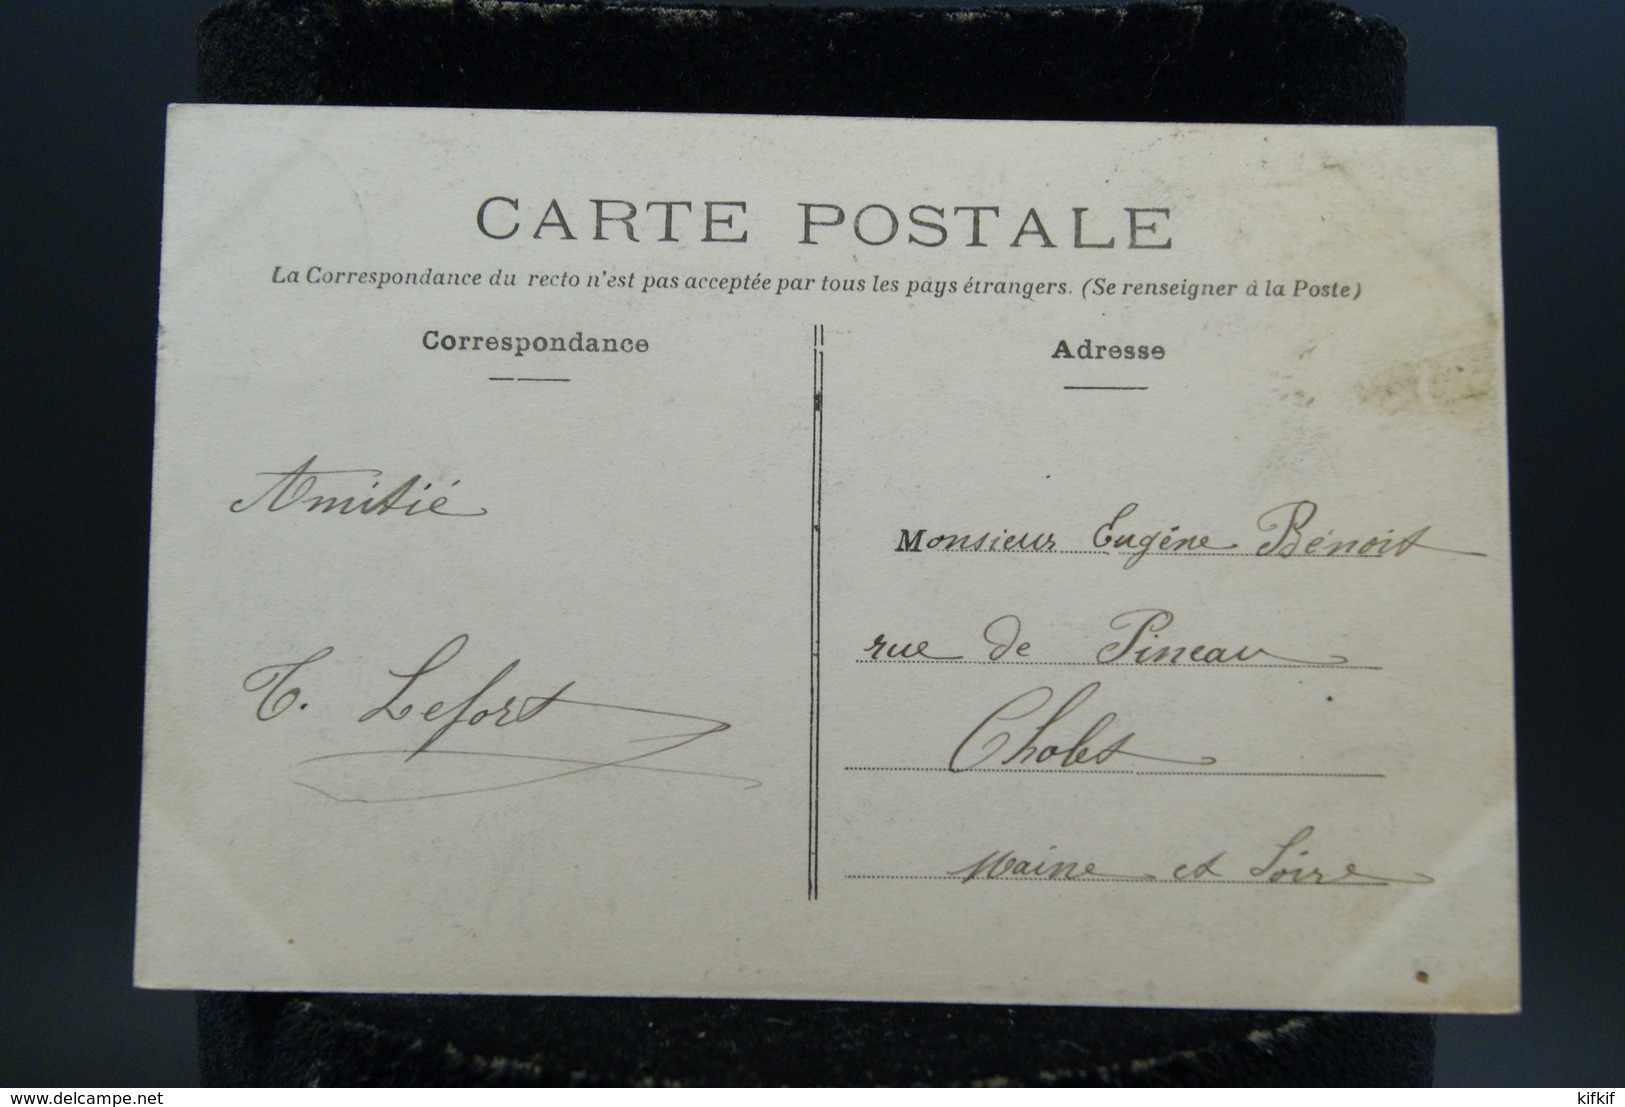 CARTE POSTALE
La Correspondance du recto n'est pas acceptée par tous les pays étrangers. (Se renseigner à la Poste)
Correspondance
Amitié
T. Lefort
Adresse
Monsieur Eugène Bénoit
rue de Pineau
Cholet
Maine et Loire
delcampe.net
kifkif